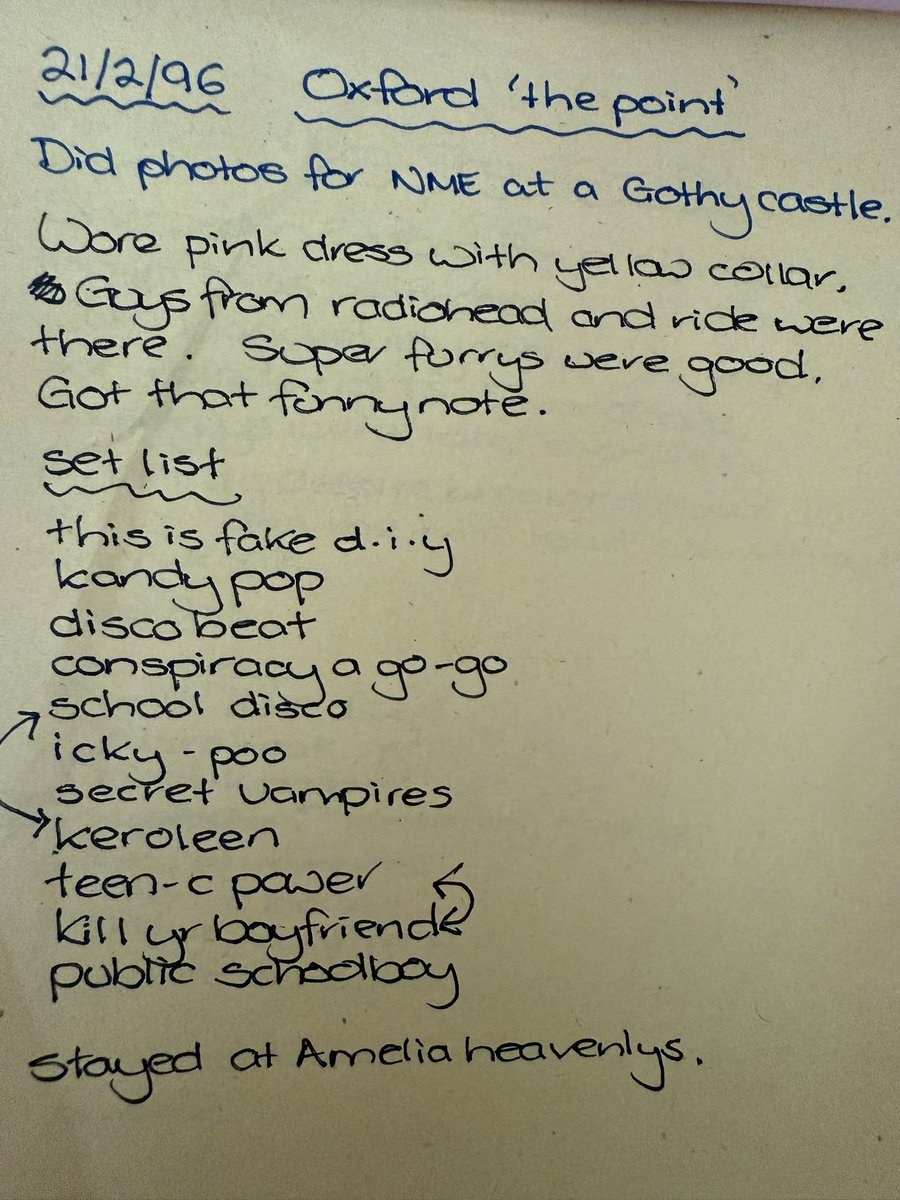 21/2/96 Oxford 'the point'
Did photos for NME at a Gothy castle.
Wore pink dress with yellow collar.
Guys from radiohead and ride were
there. Super furrys were good.
Got that funny note.
set list
this is fake d.i.y
kandy pop
disco beat
conspiracy a go-go
school disco
icky-poo
secret vampires
keroleen
teen-c power
kill yr boyfriend
public schoolboy
stayed at Amelia heavenlys.